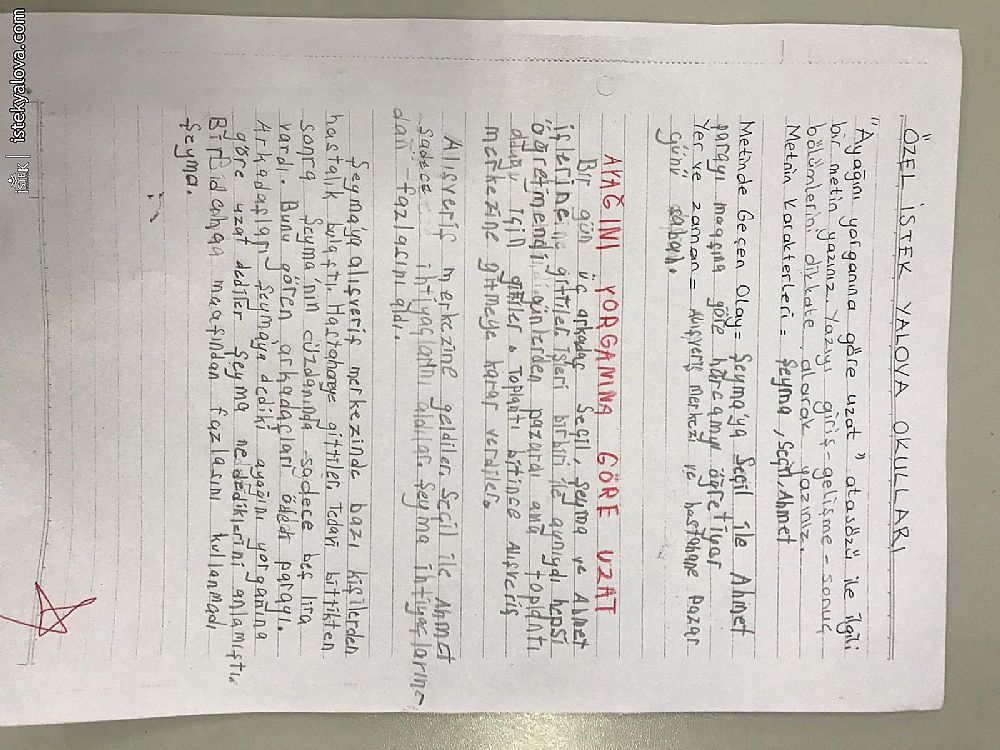 ÖZEL İSTEK YALOVA OKULLARI
"Ayağını yorganına göre uzat" atasözü ile ilgili
bir metin yazınız. Yazıyı giriş-gelişme-sonuç
bölümlerini dikkate alarak yazınız.
Metnin Karakterleri = Şeyma, Seçil, Ahmet
Metinde Geçen Olay= Şeyma'ya Seçil ile Ahmet
parayı maaşına göre harcamyı öğretiyor
Yer ve zaman = Alışveriş merkezi ve hastahane Pazar
günü sabah.
AYAĞINI YORGANINA GÖRE UZAT
Bir gün üç arkadaş Seçil, Şeyma ve Ahmet
işlerine gittiler. İşleri birbiri ile aynıydı hepsi
öğretmendi günlerden pazardı ama toplantı
olduğu için gittiler. Toplantı bitince Alışveriş
merkezine gitmeye karar verdiler.
Alışveriş merkezine geldiler. Seçil ile Ahmet
sadece ihtiyaçlarını aldılar. Şeyma ihtiyaçların-
dan fazlasını aldı.
Şeyma'ya alışveriş merkezinde bazı kişilerden
hastalık bulaştı. Hastahaneye gittiler. Tedavi bittikten
sonra Şeyma'nın cüzdanında sadece beş lira
vardı. Bunu gören arkadaşları ödedi parayı.
Arkadaşları Şeymaya dediki ayağını yorganına
göre uzat dediler Şeyma ne dediklerini anlamıştı.
Bir daha maaşından fazlasını kullanmadı
Şeyma.
iSTK | istekyalova.com